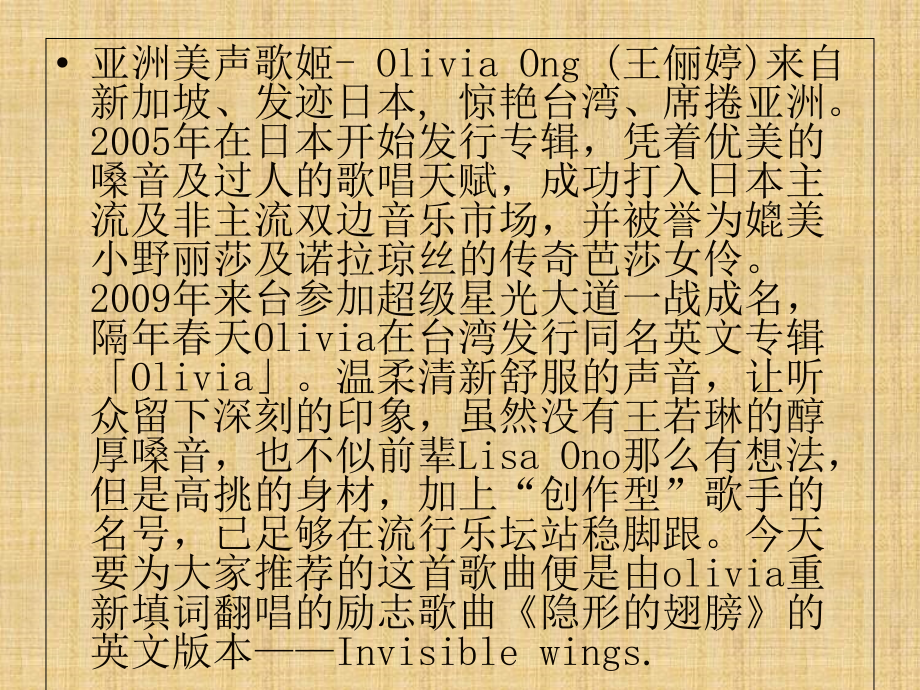 • 亚洲美声歌姬- Olivia Ong (王俪婷)来自
新加坡、发迹日本, 惊艳台湾、席捲亚洲。
2005年在日本开始发行专辑，凭着优美的
嗓音及过人的歌唱天赋，成功打入日本主
流及非主流双边音乐市场，并被誉为媲美
小野丽莎及诺拉琼丝的传奇芭莎女伶。
2009年来台参加超级星光大道一战成名，
隔年春天Olivia在台湾发行同名英文专辑
「Olivia」。温柔清新舒服的声音，让听
众留下深刻的印象，虽然没有王若琳的醇
厚嗓音，也不似前辈Lisa Ono那么有想法，
但是高挑的身材，加上“创作型”歌手的
名号，己足够在流行乐坛站稳脚跟。今天
要为大家推荐的这首歌曲便是由olivia重
新填词翻唱的励志歌曲《隐形的翅膀》的
英文版本———Invisible wings.